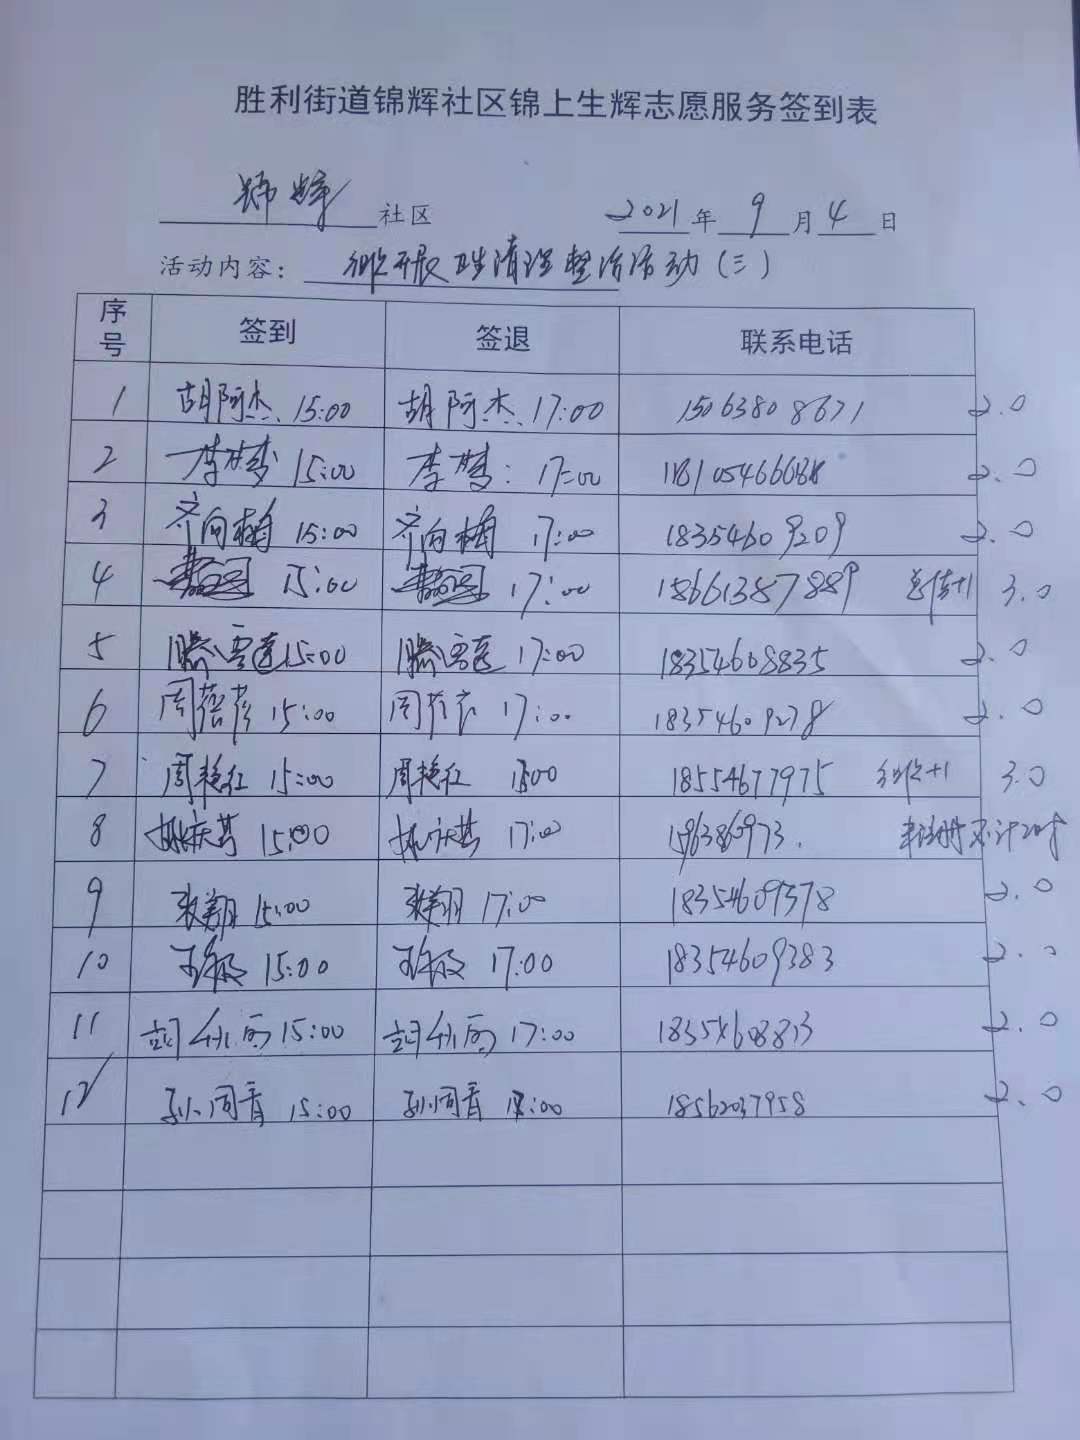 胜利街道锦辉社区锦上生辉志愿服务签到表
社区 2021年9月4日
活动内容: 开展卫生清理整治活动(三)
序号 签到 签退 联系电话
1 胡阿杰 15:00 胡阿杰 17:00 15063808671 2.0
2 李梦 15:00 李梦 17:00 2.0
3 齐向梅 15:00 齐向梅 17:00 18354609209 2.0
4 15:00 17:00 18661387889 +1 3.0
5 滕雪莲 15:00 滕雪莲 17:00 18354608835 2.0
6 周蓓 15:00 周 17:00 18354609278 2.0
7 周艳红 15:00 周艳红 18554677975 +1 3.0
8 15:00 17:00 15963860973. 未注册不计
9 张翔 15:00 张翔 17:00 18354609378 2.0
10 15:00 17:00 18354609383 2.0
11 胡 15:00 胡 17:00 18354608813 2.0
12 孙同青 15:00 孙同青 :00 18562037958 2.0